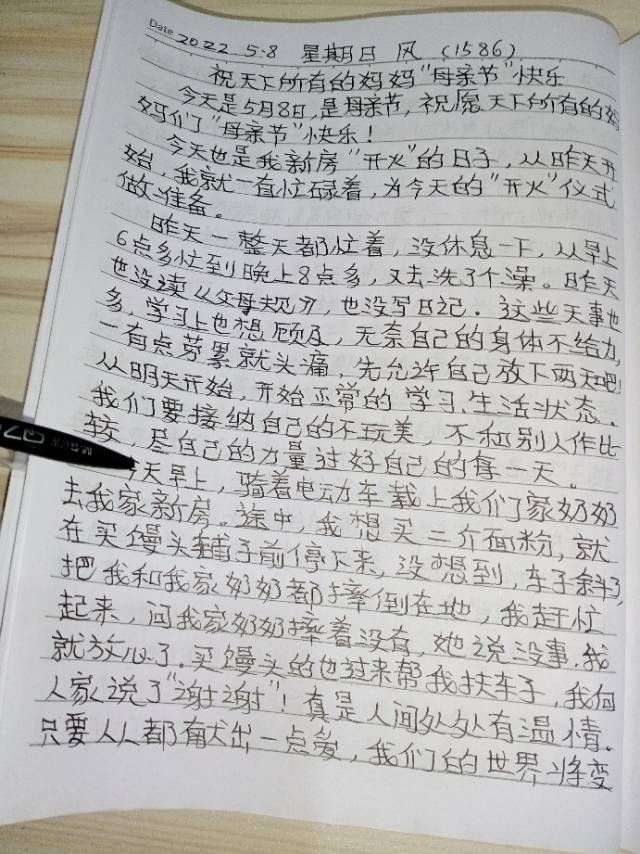 Date 2022 5.8 星期日 风 (1586)
祝天下所有的妈妈"母亲节"快乐
今天是5月8日,是母亲节,祝愿天下所有的妈
妈们"母亲节"快乐!
今天也是我新房"开火"的日子,从昨天开
始,我就一直忙碌着,为今天的"开火"仪式
做准备。
昨天一整天都忙着,没休息一下,从早上
6点多忙到晚上8点多,又去洗了个澡。昨天
也没读《父母规》,也没写日记。这些天事也
多,学习上也想顾及,无奈自己的身体不给力,
一有点劳累就头痛,先允许自己放下两天吧!
从明天开始,开始正常的学习、生活状态。
我们要接纳自己的不玩美,不和别人作比
较,尽自己的力量过好自己的每一天。
今天早上,骑着电动车载上我们家奶奶
去我家新房。途中,我想买二介面粉,就
在买馒头铺子前停下来,没想到,车子斜了,
把我和我家奶奶都摔倒在地,我赶忙
起来,问我家奶奶摔着没有,她说没事,我
就放心了。买馒头的也过来帮我扶车子,我向
人家说了"谢谢"!真是人间处处有温情。
只要人人都献出一点爱,我们的世界将变